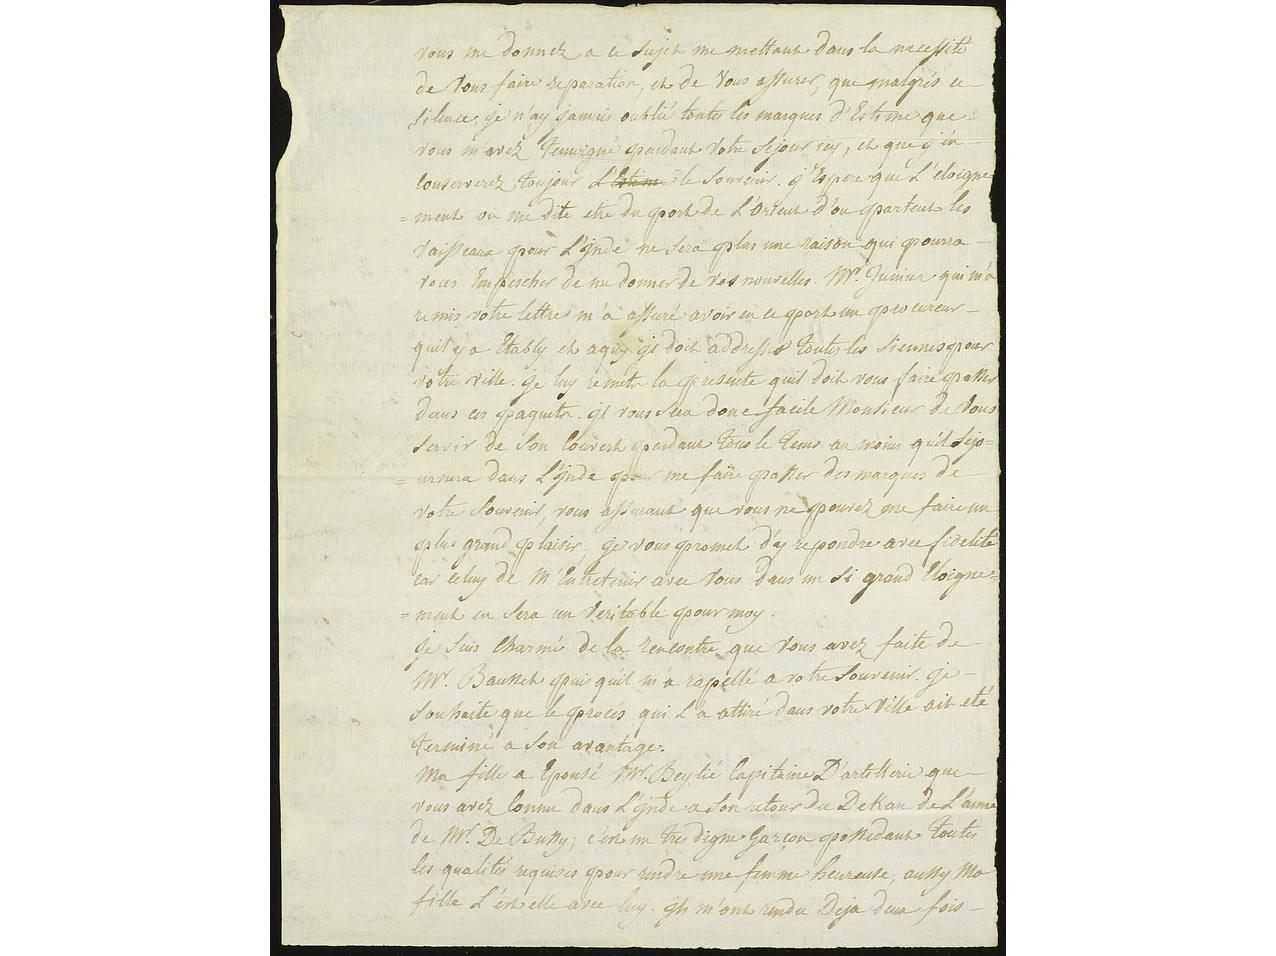 vous me donnez a ce sujet me mettant dans la necessité
de vous faire reparation, et de vous assurer, que malgrés ce
silence, je n'ay jamais oublié toutes les marques d'Estime que
vous m'avez temoigné pendant votre sejour icy, et que j'en
conserverez toujour L'Estime le souvenir. j'Espere que L'eloigne
= ment ou me dite etre du port de L'Orient d'ou partent les
vaisseaux pour L'jnde ne sera plus une raison qui pourra
vous Empescher de me donner de vos nouvelles. Mr. Junius qui m'a
remis votre lettre m'a assuré avoir en ce port un procureur
quil y a Etably et a quy jl doit addresser toutes les siennes pour
votre ville. je luy remets la presente quil doit vous faire passer
dans ces paquets. jl vous sera donc facile Monsieur de vous
servir de son couvert pendant tous le tems au moins qu'il sejo=
= urnera dans L'jnde pour me faire passer des marques de
votre souvenir, vous assurant que vous ne pouvez me faire un
plus grand plaisir, je vous promet d'y repondre avec fidelité
car celuy de M'Entretenir avec vous dans un si grand Eloigne=
= ment en sera un veritable pour moy.
je suis charmé de la rencontre que vous avez faite de
Mr. Bausset puis quil m'a rapellé a votre souvenir. je
souhaite que le procés qui L'a attiré dans votre ville ait eté
terminé a son avantage.
Ma fille a Epousé Mr. Beylié Capitaine D'artillerie que
vous avez connu dans L'jnde a son retour du Dekan de L'armé
de Mr. De Bussy; c'est un tres digne Garçon possedant toutes
les qualités requises pour rendre une femme heureuse, aussy Ma
fille L'est elle avec luy. jls m'ont rendu Deja deux fois